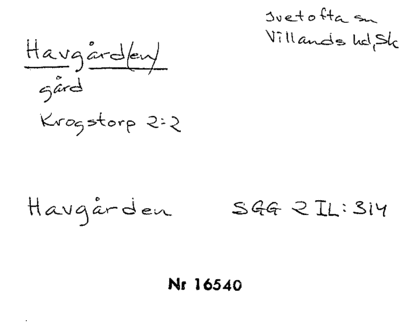 Ivetofta sn
Villands hd, Sk
Havgård(en)
gård
Krogstorp 2:2
Havgården SGG 2 IL: 314
Nr 16540